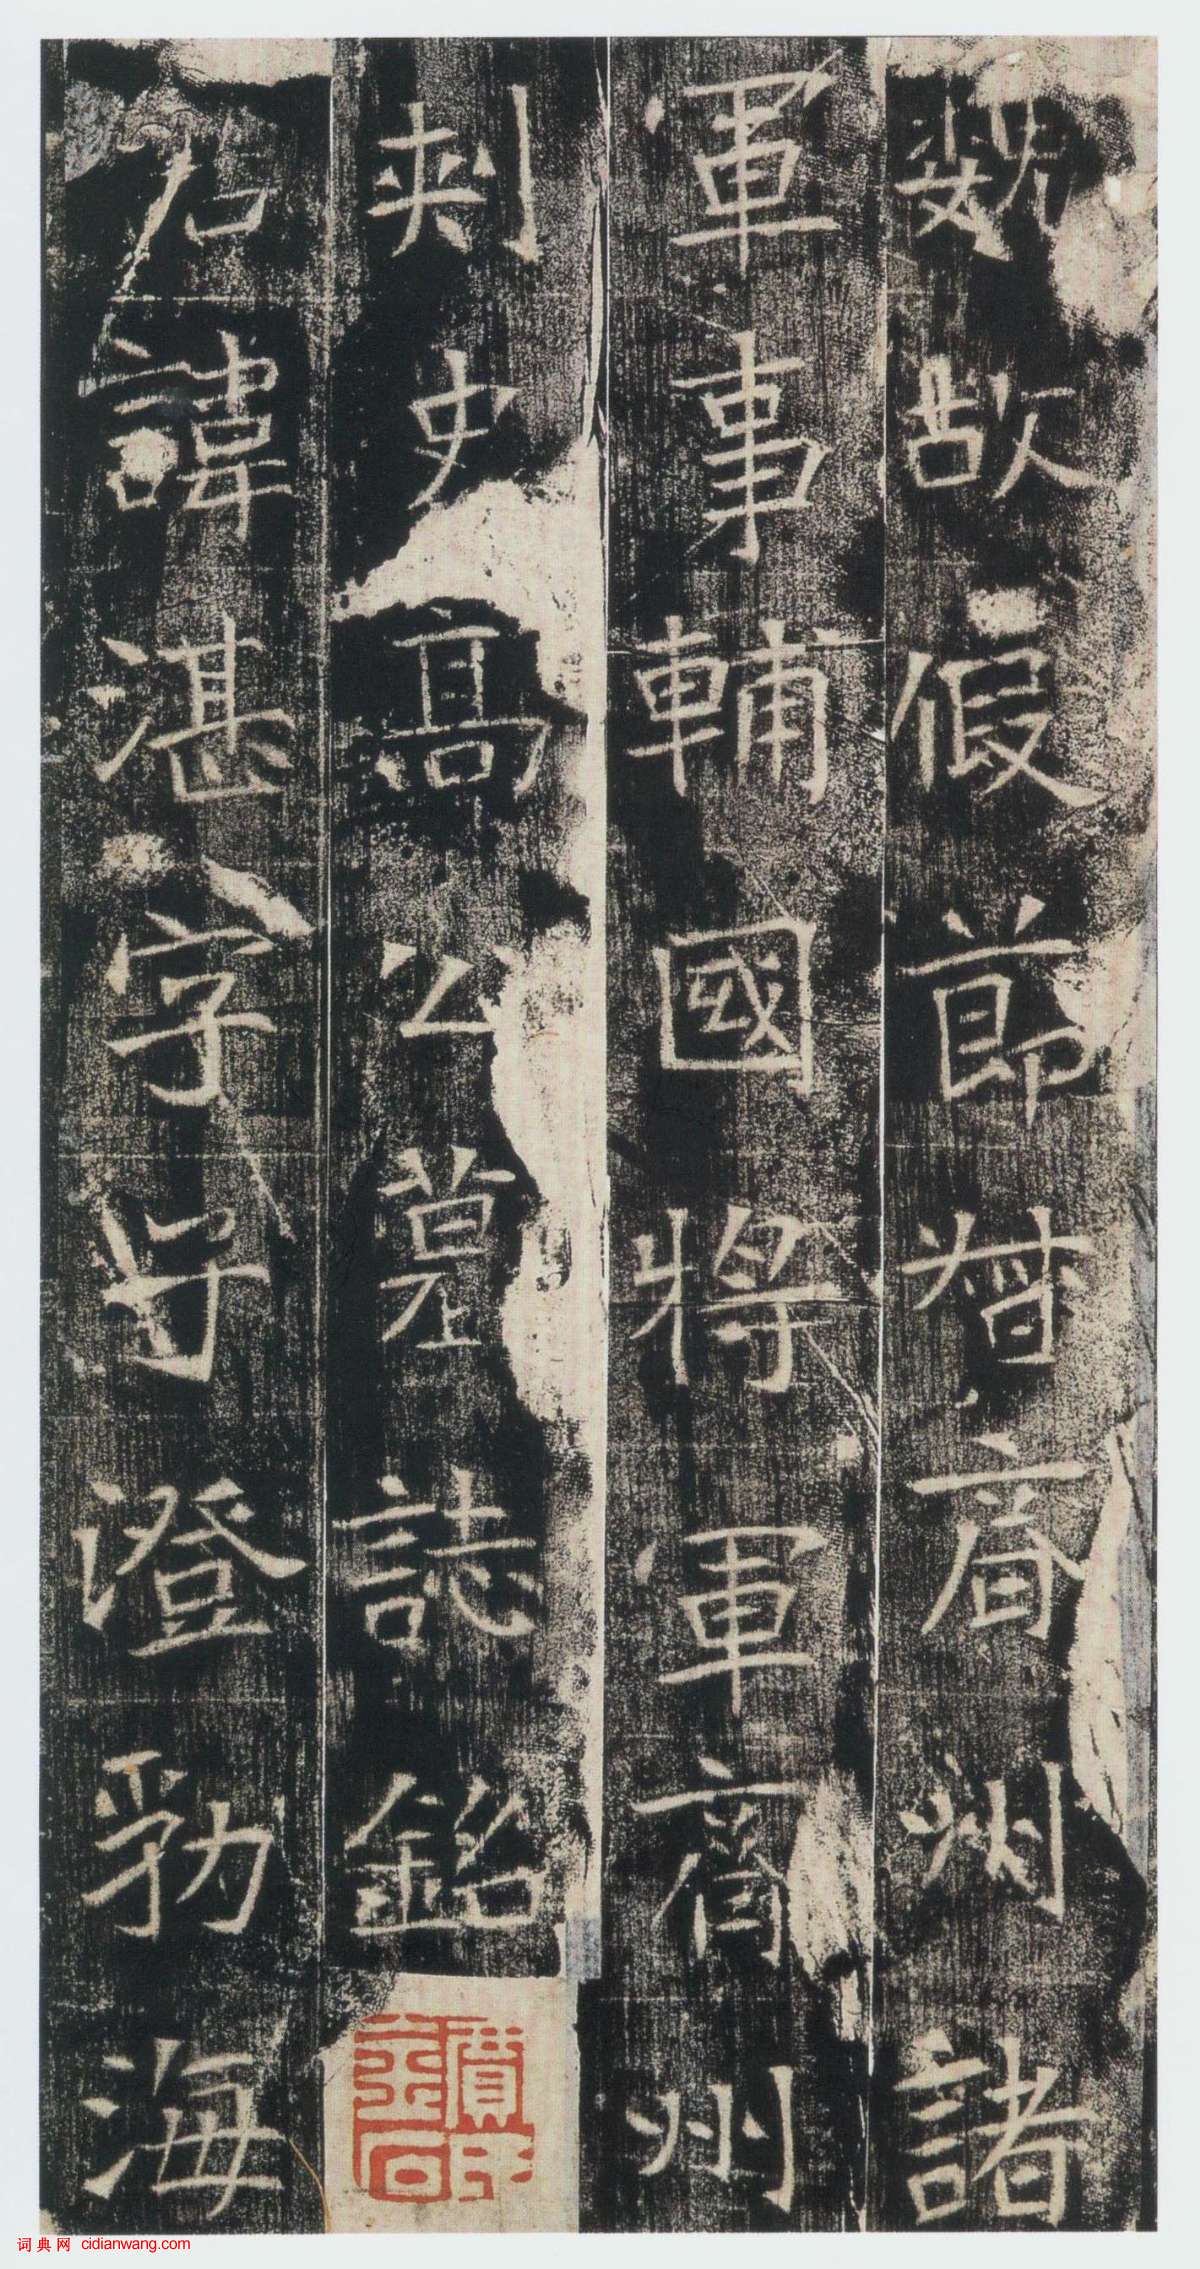 魏故假節督齊州諸
軍事輔國將軍齊州
刺史高公墓誌銘
君諱湛字子澄勃海
詞典网 cidianwang.com